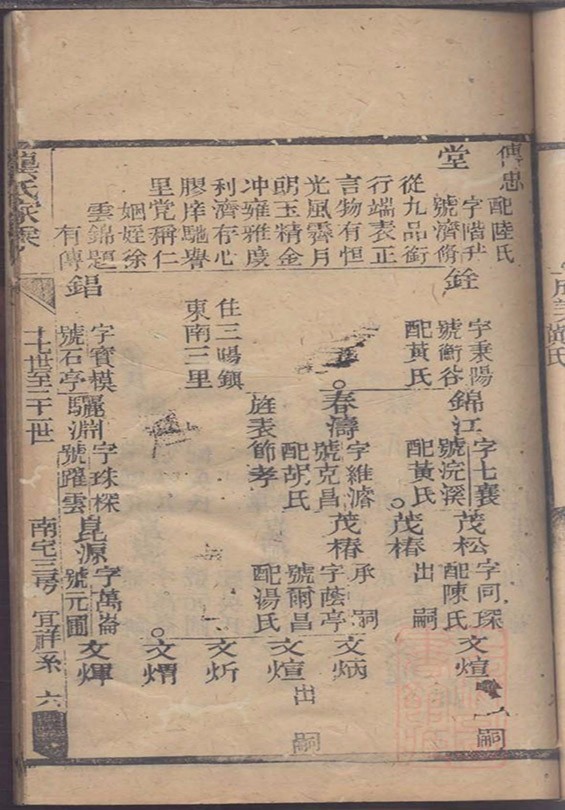 傳忠
配陸氏
堂
字階尹
號濟脩
從九品銜
行端表正
言物有恒
光風霽月
朗玉精金
冲雍雅度
利濟存心
膠庠馳譽
里党稱仁
姻婭徐
雲錦題
有傳
銓
字秉陽
號衡谷
配黃氏
住三暘鎮
東南三里
錩
字寶模
號石亭
錦江
字七襄
號浣溪
配黃氏
春濤
字維濬
號克昌
配胡氏
旌表節孝
驪淵
字珠楺
號躍雲
茂松
字同琛
配陳氏
茂椿
出嗣
茂椿
承嗣
字蔭亭
號爾昌
配湯氏
崑源
字萬崙
號元圃
文煊
嗣
文炳
文煊
出嗣
文炘
文熠
文煇
龔氏家乘
十七世至二十世
南宅三房
宜祥系
六